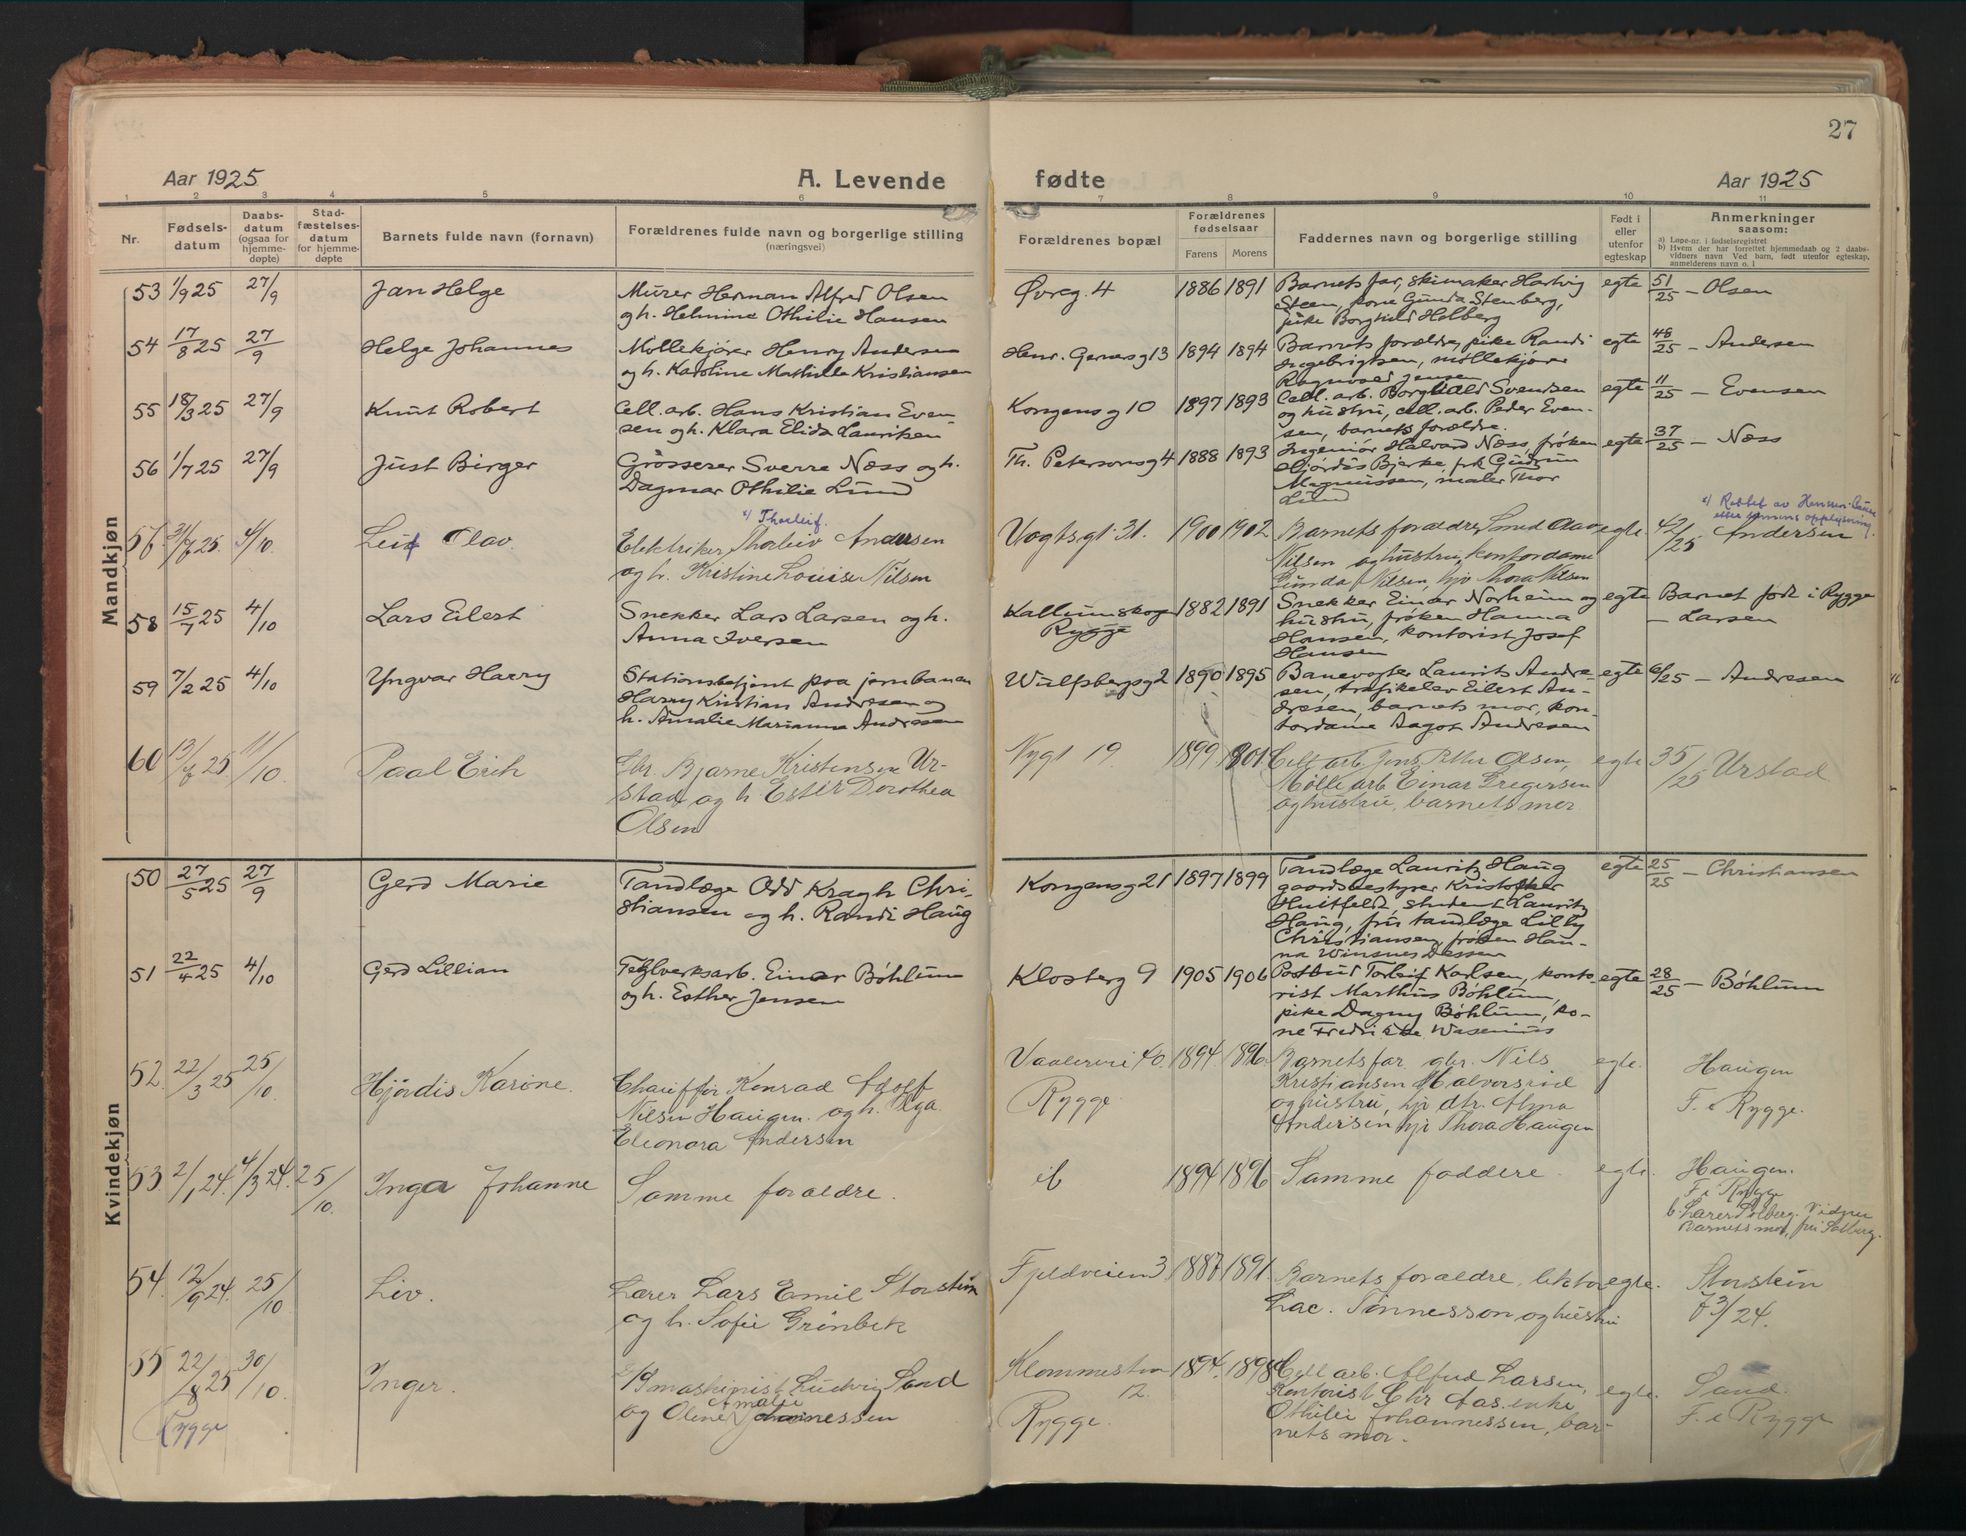 27
Aar 1925 A. Levende fødte Aar 1925
1 2 3 4 5 6 7 8 9 10 11
Nr. Fødsels-datum Daabs-datum (ogsaa for hjemme-døpte) Stad-fæstelses-datum for hjemme-døpte Barnets fulde navn (fornavn) Forældrenes fulde navn og borgerlige stilling (næringsvei) Forældrenes bopæl Forældrenes fødselsaar Farens Morens Faddernes navn og borgerlige stilling Født i eller utenfor egteskap Anmerkninger saasom:
a) Løpe-nr. i fødselsregistret
b) Hvem der har forrettet hjemmedaab og 2 daabs-vidners navn Ved barn, født utenfor egteskap, anmelderens navn o. l
Mandkjøn
53 1/9 25 27/9 Jan Helge Murer Herman Alfred Olsen Øvreg. 4 1886 1891 Barnets far, skimaker Hartvig egte 51/25 – Olsen
og h. Helmine Othilie Hansen Steen, kone Gunda Stenberg,
pike Borghild Holberg
54 17/8 25 27/9 Helge Johannes Møllekjører Henry Andersen Henr. Gernersg 13 1894 1894 Barnets forældre, pike Randi egte 48/25 – Andersen
og h. Karoline Mathilde Kristiansen Ingebrigtsen, møllekjører
Ragnvald Jensen
55 18/3 25 27/9 Knut Robert Cell. arb. Hans Kristian Even- Kongensg 10 1897 1893 Cell. arb. Borghild Svendsen egte 11/25 – Evensen
sen og h. Klara Elida Lauritsen og hustru, cell. arb. Peder Even-
sen, barnets forældre.
56 1/7 25 27/9 Just Birger Grosserer Sverre Næss og h. Th. Petersonsg 4 1888 1893 Ingeniør Halvard Næss, frøken egte 37/25 – Næss
Dagmar Othilie Lund Hjørdis Bjerke, frk Gudrun
Magnussen, maler Thor
Lund
x) Thorleif. x) Rettet av
57 31/7 25 4/10 Leif Olav. Elektriker Thorleiv Andersen Vogtsgt 31. 1900 1902 Barnets foraldre, Smed Olav egte. 42/25 Andersen
og h. Kristine Louise Nilsen Nilsen og hustru, kontordame
Gunda Nilsen, hjv Thora Nilsen
58 15/7 25 4/10 Lars Eilert Snekker Lars Larsen og h. Kallumskogen 1882 1891 Snekker Einar Norheim og egte Barnet født i Rygge
Anna Iversen Rygge hustru, frøken Hanna – Larsen
Hansen, kontorist Josef
Hansen
59 7/2 25 4/10 Yngvar Harry Stationsbetjent paa jernbanen Wulfsbergsg 2 1890 1895 Banevogter Laurits Andre- egte 6/25 – Andresen
Harry Kristian Andresen og sen, trafikelev Eilert An-
h. Amalie Marianna Andresen dresen, barnets mor, kon-
tordame Aagot Andresen
60 13/7 25. 11/10. Paal Erik Gbr. Bjarne Kristensen Ur- Nygt 19. 1899 1901. Cell arb. Jens Petter Olsen, egte 35/25 Urstad
stad og h Ester Dorothea Mølle arb Einar Gregersen
Olsen og hustru, barnets mor.
Kvindekjøn
50 27/5 25 27/9 Gerd Marie Tandlæge Odd Kragh Chri- Kongensg 21 1897 1899 Tandlæge Lauritz Haug egte 25/25 – Christiansen
stiansen og h. Randi Haug gaardsbestyrer Kristoffer
Huitfeldt, student Lauritz
Haug, fru tandlæge Lilly
Christiansen, frøken Han-
na Winsnes Dessen
51 22/4 25 4/10 Gerd Lillian Teglverksarb. Einar Bøhlum Klosterg 9 1905 1906 Postbud Torleif Karlsen, konto- egte 28/25 – Bøhlum
og h. Esther Jensen rist Marthus Bøhlum,
pike Dagny Bøhlum, ko-
ne Fredrikke Wasenius
52. 22/3 25 25/10. Hjørdis Karine. Chauffør Konrad Adolf Vaalervei 40. 1894. 1896. Barnets far gbr. Nils egte. Haugen
Nilsen Haugen. og h. Olga Rygge. Kristiansen Halvorsrød F. i Rygge.
Eleonora Andersen og hustru, hjv dtr. Alma
Andersen hjv Thora Haugen
53. 2/1 24. 4/3 24. 25/10. Inga Johanne Samme foraldre. ib 1894 1896 Samme faddere. egte. Haugen.
F. i Rygge
b. Lærer Solberg. Vidner
Barnets mor, fru Solberg.
54. 12/9 24. 25/10 Liv. Lærer Lars Emil Storstein Fjeldveien 3 1887. 1891. Barnets foraldre, lektor egte. Storstein
og h. Sofie Grønbek Lac. Tønnesson og hustru 73/24.
55 22/8 25 30/10. Inger. maskinist Ludvig Sand 12. 1894. 1898 Cell arb. Alfred Larsen, egte. Sand.
Rygge Amalie
og Oline Johannessen Rygge. Kontorist Chr Aas. enke F. i Rygge
Othilie Johannessen, bar-
nets mor.